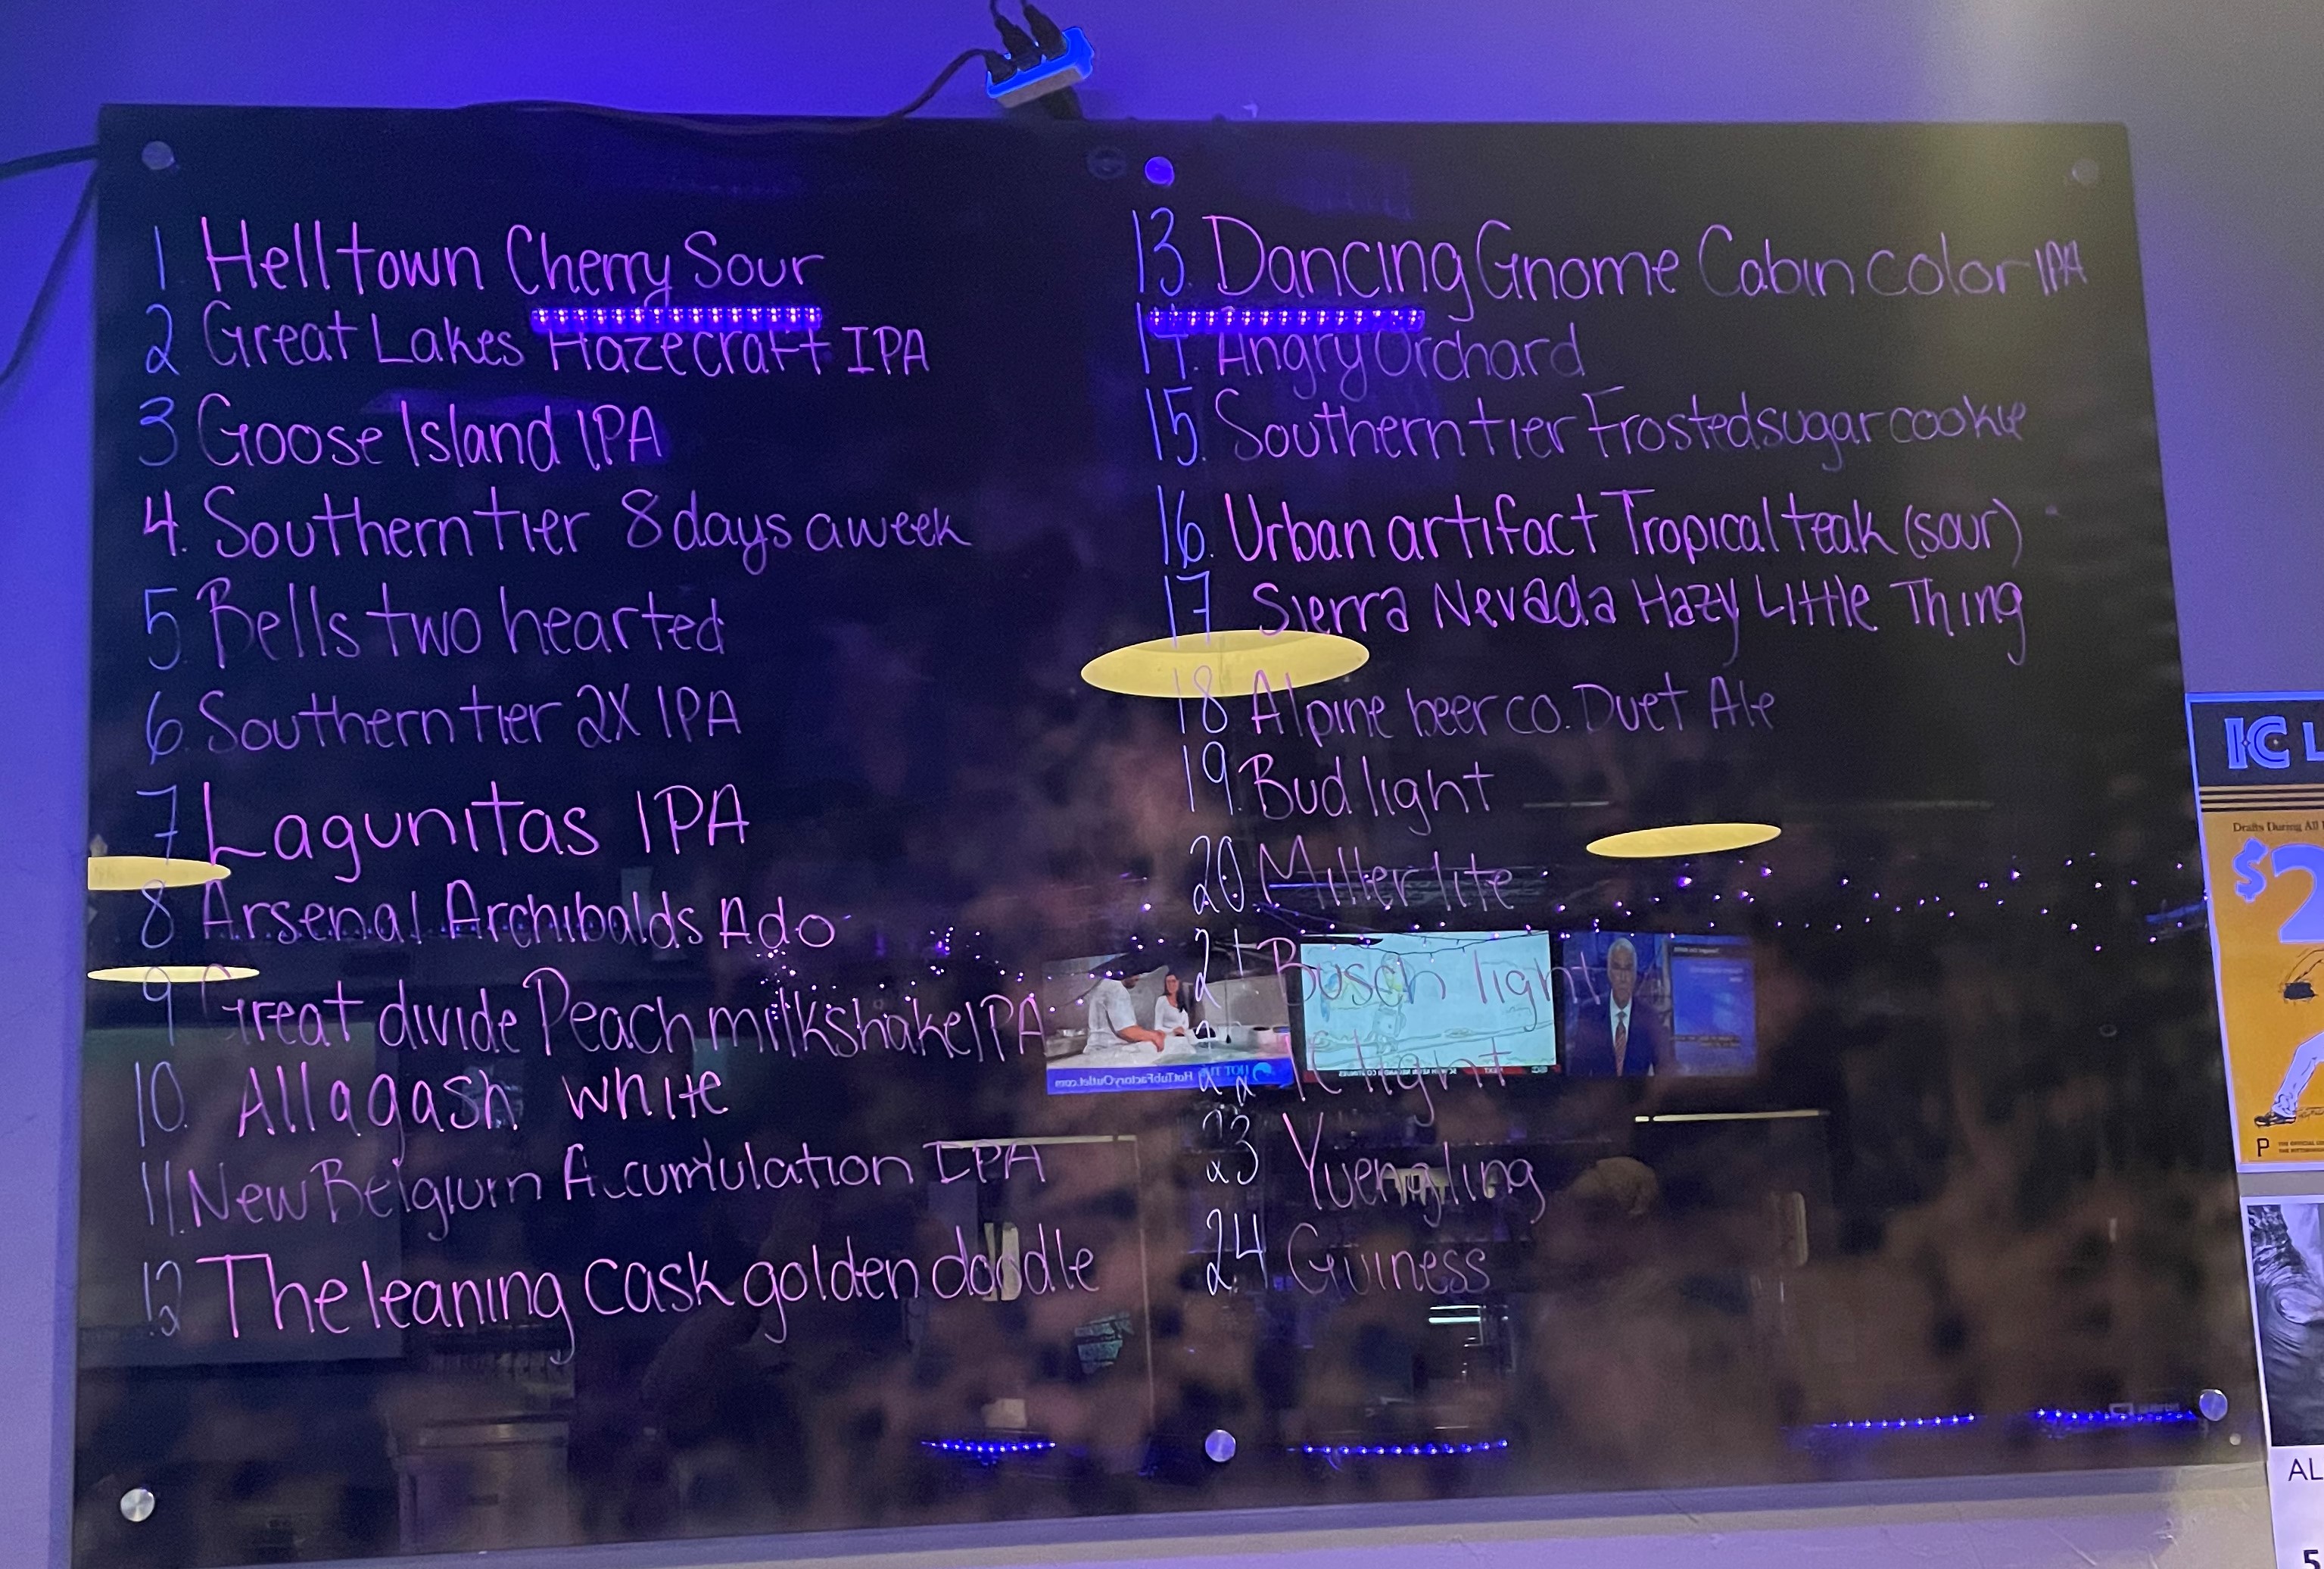 1 Helltown Cherry Sour
2 Great Lakes Hazecraft IPA
3 Goose Island IPA
4. Southern tier 8 days a week
5. Bells two hearted
6. Southern tier 2X IPA
7 Lagunitas IPA
8 Arsenal Archibalds Ado
9 Great divide Peach milkshake IPA
10. Allagash white
11. New Belgium Accumulation IPA
12 The leaning cask golden doodle
13. Dancing Gnome Cabin color IPA
14. Angry Orchard
15. Southern tier Frosted sugar cookie
16. Urban artifact Tropical teak (sour)
17 Sierra Nevada Hazy Little Thing
18 Alpine beer co. Duet Ale
19. Bud light
20. Miller lite
21 Busch light
22 IC light
23 Yuengling
24 Guiness
HotTubFactoryOutlet.com
IC L
Drafts During All
$2
P
AL
5